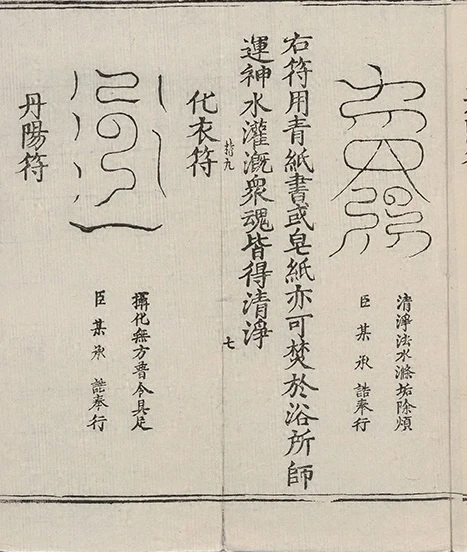 清淨法水滌垢除煩
臣某承誥奉行
右符用青紙書或皂紙亦可焚於浴所師
運神水灌溉衆魂皆得清淨
七
化衣符
攝化無方普令具足
臣某承誥奉行
丹陽符